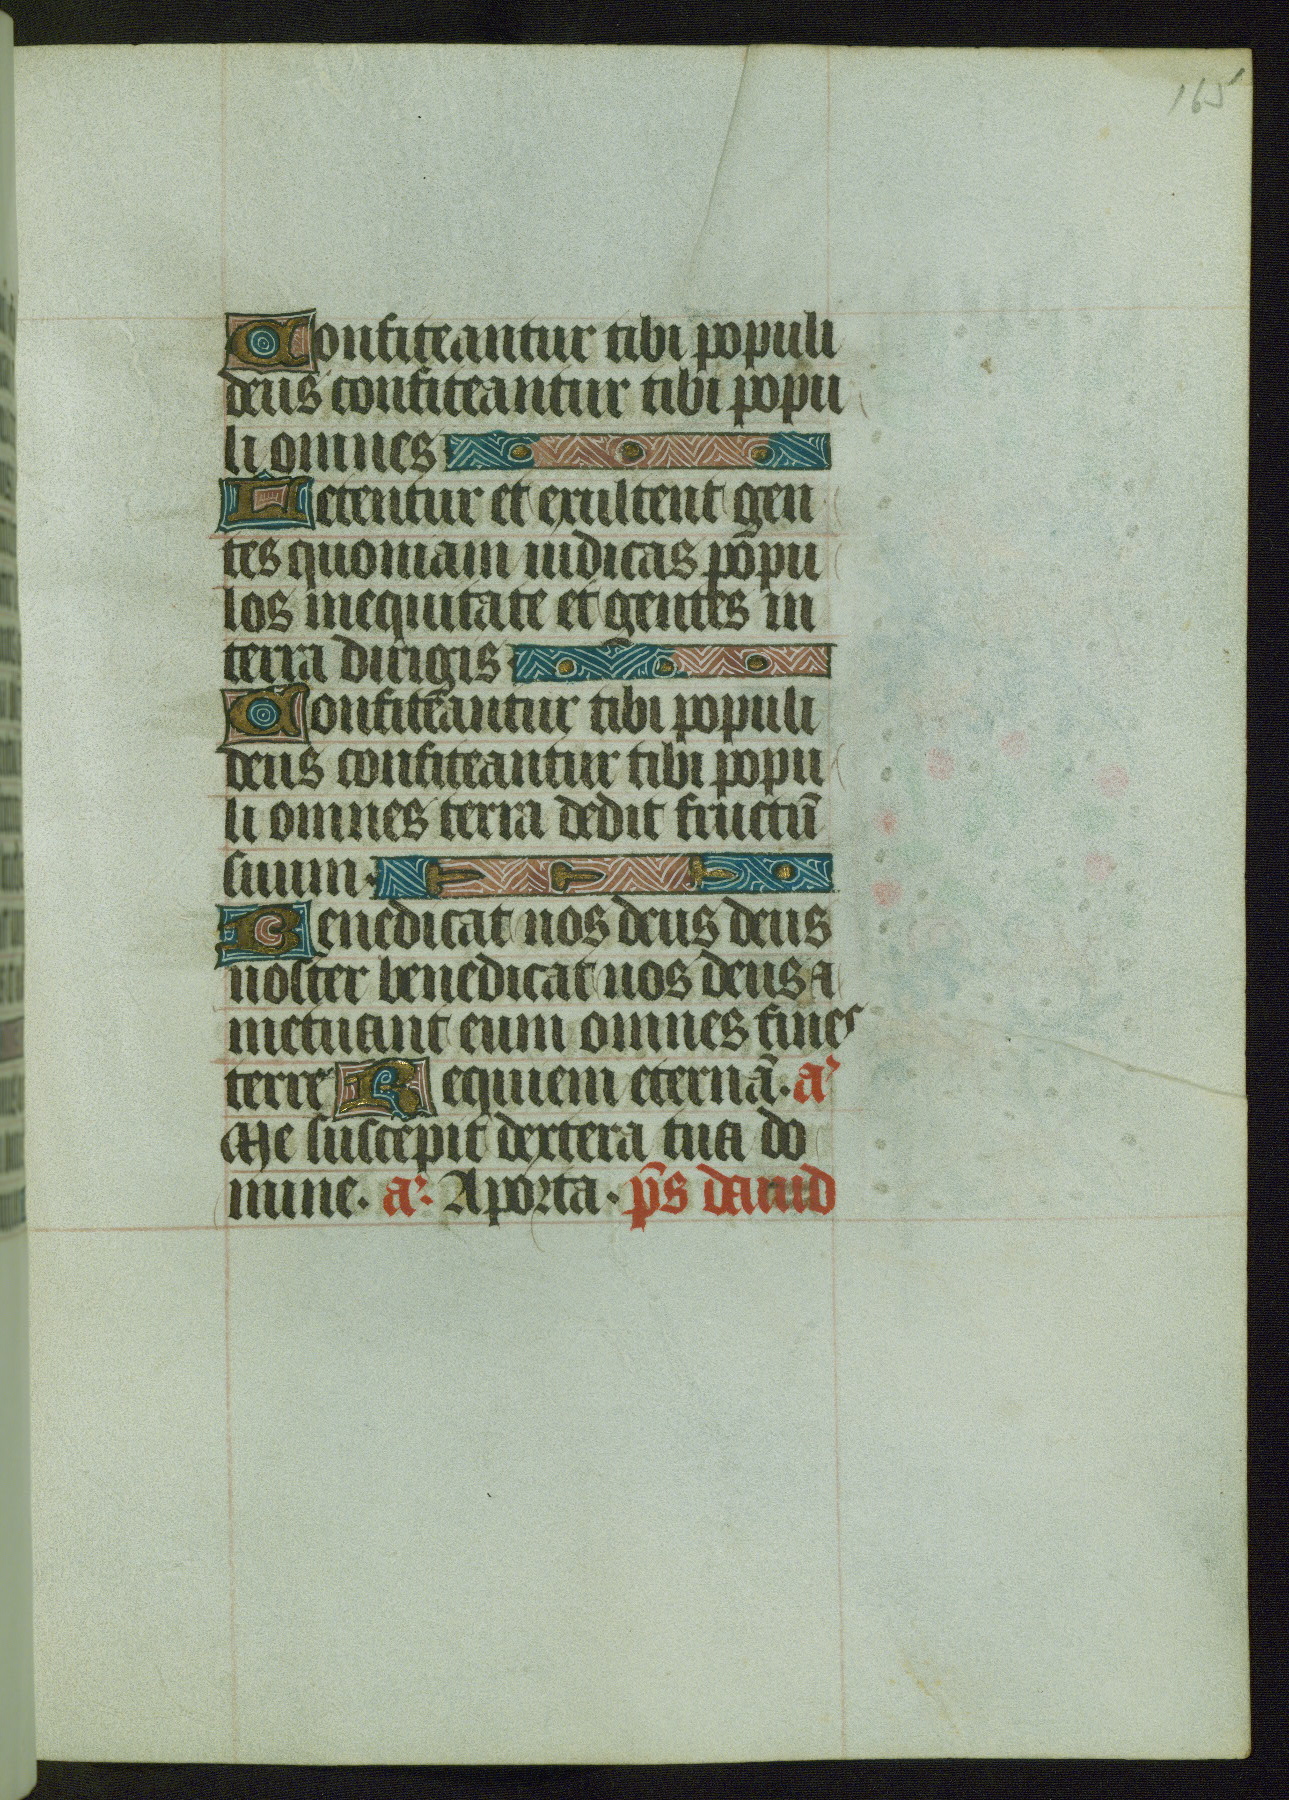 165
Confiteantur tibi populi
deus confiteantur tibi popu
li omnes
Letentur et exultent gen
tes quoniam iudicas popu
los inequitate et gentes in
terra dirigis
Confiteantur tibi populi
deus confiteantur tibi popu
li omnes terra dedit fructū
suum.
Benedicat nos deus deus
noster benedicat nos deus a
metuant eum omnes fines
terre Requiem eternā. a
Me suscepit dextera tua do
mine. a. A porta. ps̄ dauid